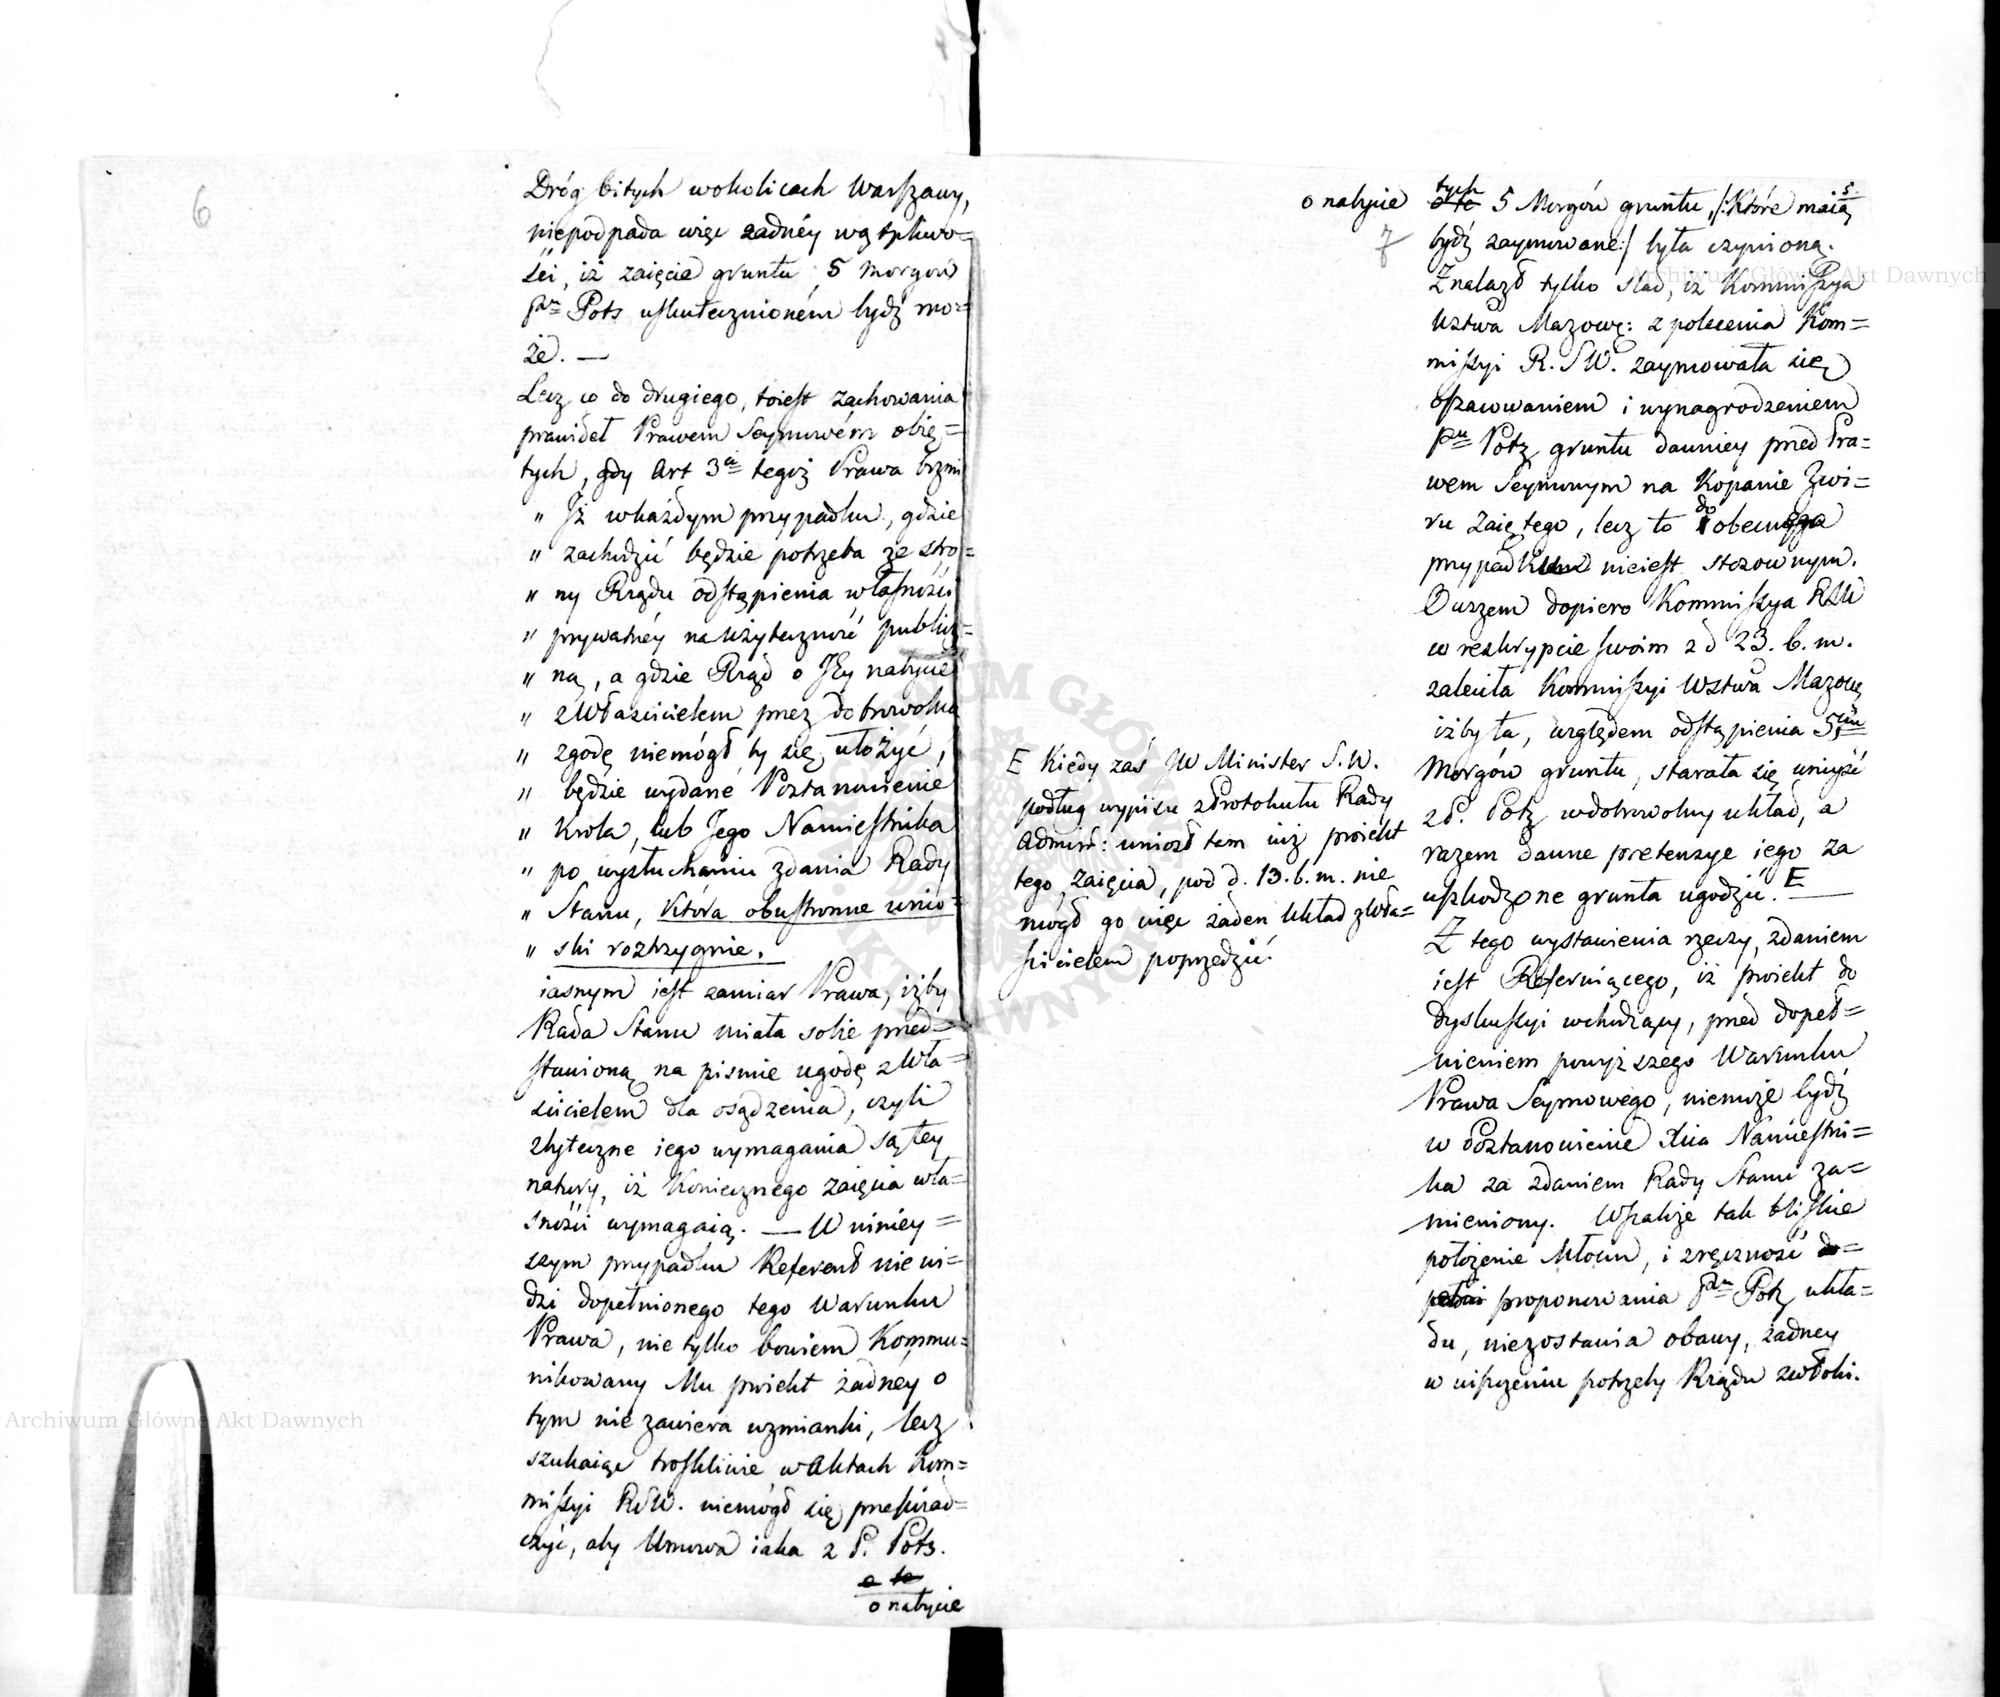 6
Dróg bitych wokolicach Warszawy,
niepodpada więc żadnéy wątpliwo=
ści, iż zaięcie gruntu 5 morgów
Pa Pots uskutecznioném bydź mo=
że. —
Lecz co do drugiego, toiest zachowania
prawideł Prawem Seymowém obię=
tych, gdy Art 3ci tegoż Prawa brzmi
„ Iż wkażdym przypadku, gdzie
„ zachodzić będzie potrzeba ze stro=
„ ny Rządu odstąpienia własności
„ prywatnéy na użyteczność publicz=
„ ną, a gdzie Rząd o Jey nabycie
„ zWłaścicielem przez dobrowolną
„ zgodę niemógł by się ułożyć,
„ będzie wydane Postanowienie
„ Krola, lub Jego Namiestnika
„ po wysłuchaniu zdania Rady
„ Stanu, która obustronne wnio=
„ ski roztrzygnie.
iasnym iest zamiar Prawa, iżby
Rada Stanu miała sobie przed=
stawioną na pismie ugodę zWła=
ścicielem dla osądzenia, czyli
zbyteczne iego wymagania są tey
natury, iż Koniecznego zaięcia wła=
sności wymagaią. — W niniey=
szym przypadku Referent nie wi=
dzi dopełnionego tego Warunku
Prawa, nie tylko bowiem Kommu=
nikowany Mu proiekt żadney o
tym nie zawiera wzmianki, lecz
szukaiąc troskliwie wAktach Kom=
missyi RSW. niemógł się przeświad=
czyć, aby Umowa iaka z P. Pots.
o te
o nabycie
o nabycie tych o te 5 Morgów gruntu, /:Które maią
7
bydź zaymowane:/ była czynioną.
Znalazł tylko slad, iż Kommissya
Wztwa Mazowc: z polecenia Kom=
missyi R. S W. zaymowała się
oszacowaniem i wynagrodzeniem
Pu Potz gruntu dawniey przed Pra=
wem Seymowym na Kopanie Zwi=
ru zaiętego, lecz to do obecnego
przypadku nieiest stosownym.
Owszem dopiero Kommissya RSW
w reskrypcie swoim z d 23. b. m.
zaleciła Kommissyi Wztwa Mazowc
iżby ta, względem odstąpienia 5ciu
Morgów gruntu, starała się wniyść
z P. Potz wdobrowolny układ, a
razem dawne pretensye iego za
uszkodzone grunta ugodzić. E —
Z tego wystawienia rzeczy, zdaniem
iest Referuiącego, iż proiekt do
dyskussyi wchodzący, przed dopeł=
nieniem powyższego Warunku
Prawa Seymowego, niemoże bydź
w Postanowienie Xcia Namiestni=
ka za zdaniem Rady Stanu za=
mieniony. Wszakże tak bliskie
położenie Młocin, i zręczność do=
proponowania Pu Potz ukła=
du, niezostawia obawy, żadney
w uiszczeniu potrzeby Rządu zwłoki.
E Kiedy zaś JW Minister S. W.
podług wypisu zProtokułu Rady
Admin: wniosł tam iuż proiekt
tego zaięcia, pod d. 13. b. m. nie
mógł go więc żaden Układ zWła=
scicielem poprzedzić.
Archiwum Główne Akt Dawnych
Archiwum Główne Akt Dawnych